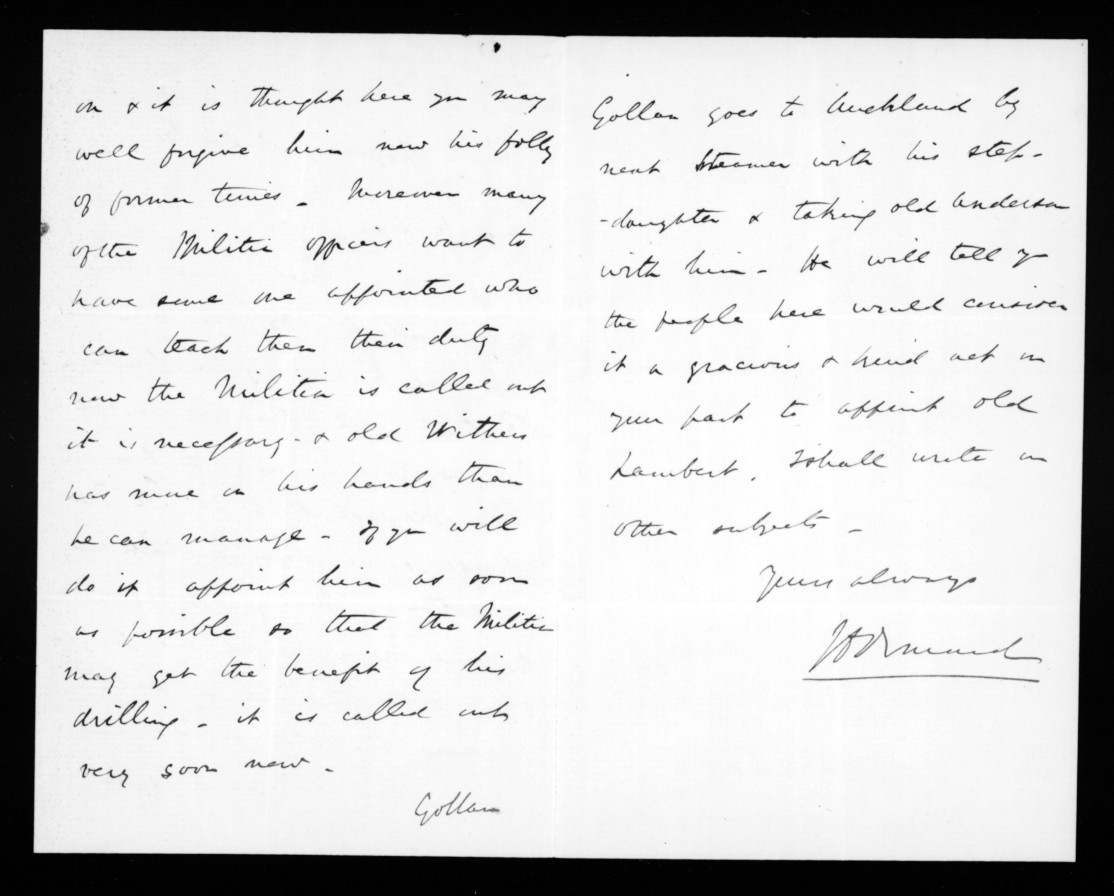 on & it is thought here you may
well forgive him now his folly
of former times - Moreover many
of the Militia officers want to
have some one appointed who
can teach them their duty
now the Militia is called out
it is necessary - & old Withers
has more on his hands than
he can manage - If you will
do it appoint him as soon
as possible so that the Militia
may get the benefit of his
drilling - it is called out
very soon now -
Gollan
Gollan goes to Auckland by
next Steamer with his step-
-daughter & taking old Anderson
with him - He will tell you
the people here would consider
it a gracious & kind act on
your part to appoint old
Lambert. I shall write on
other subjects -
Yours always
JD Ormond